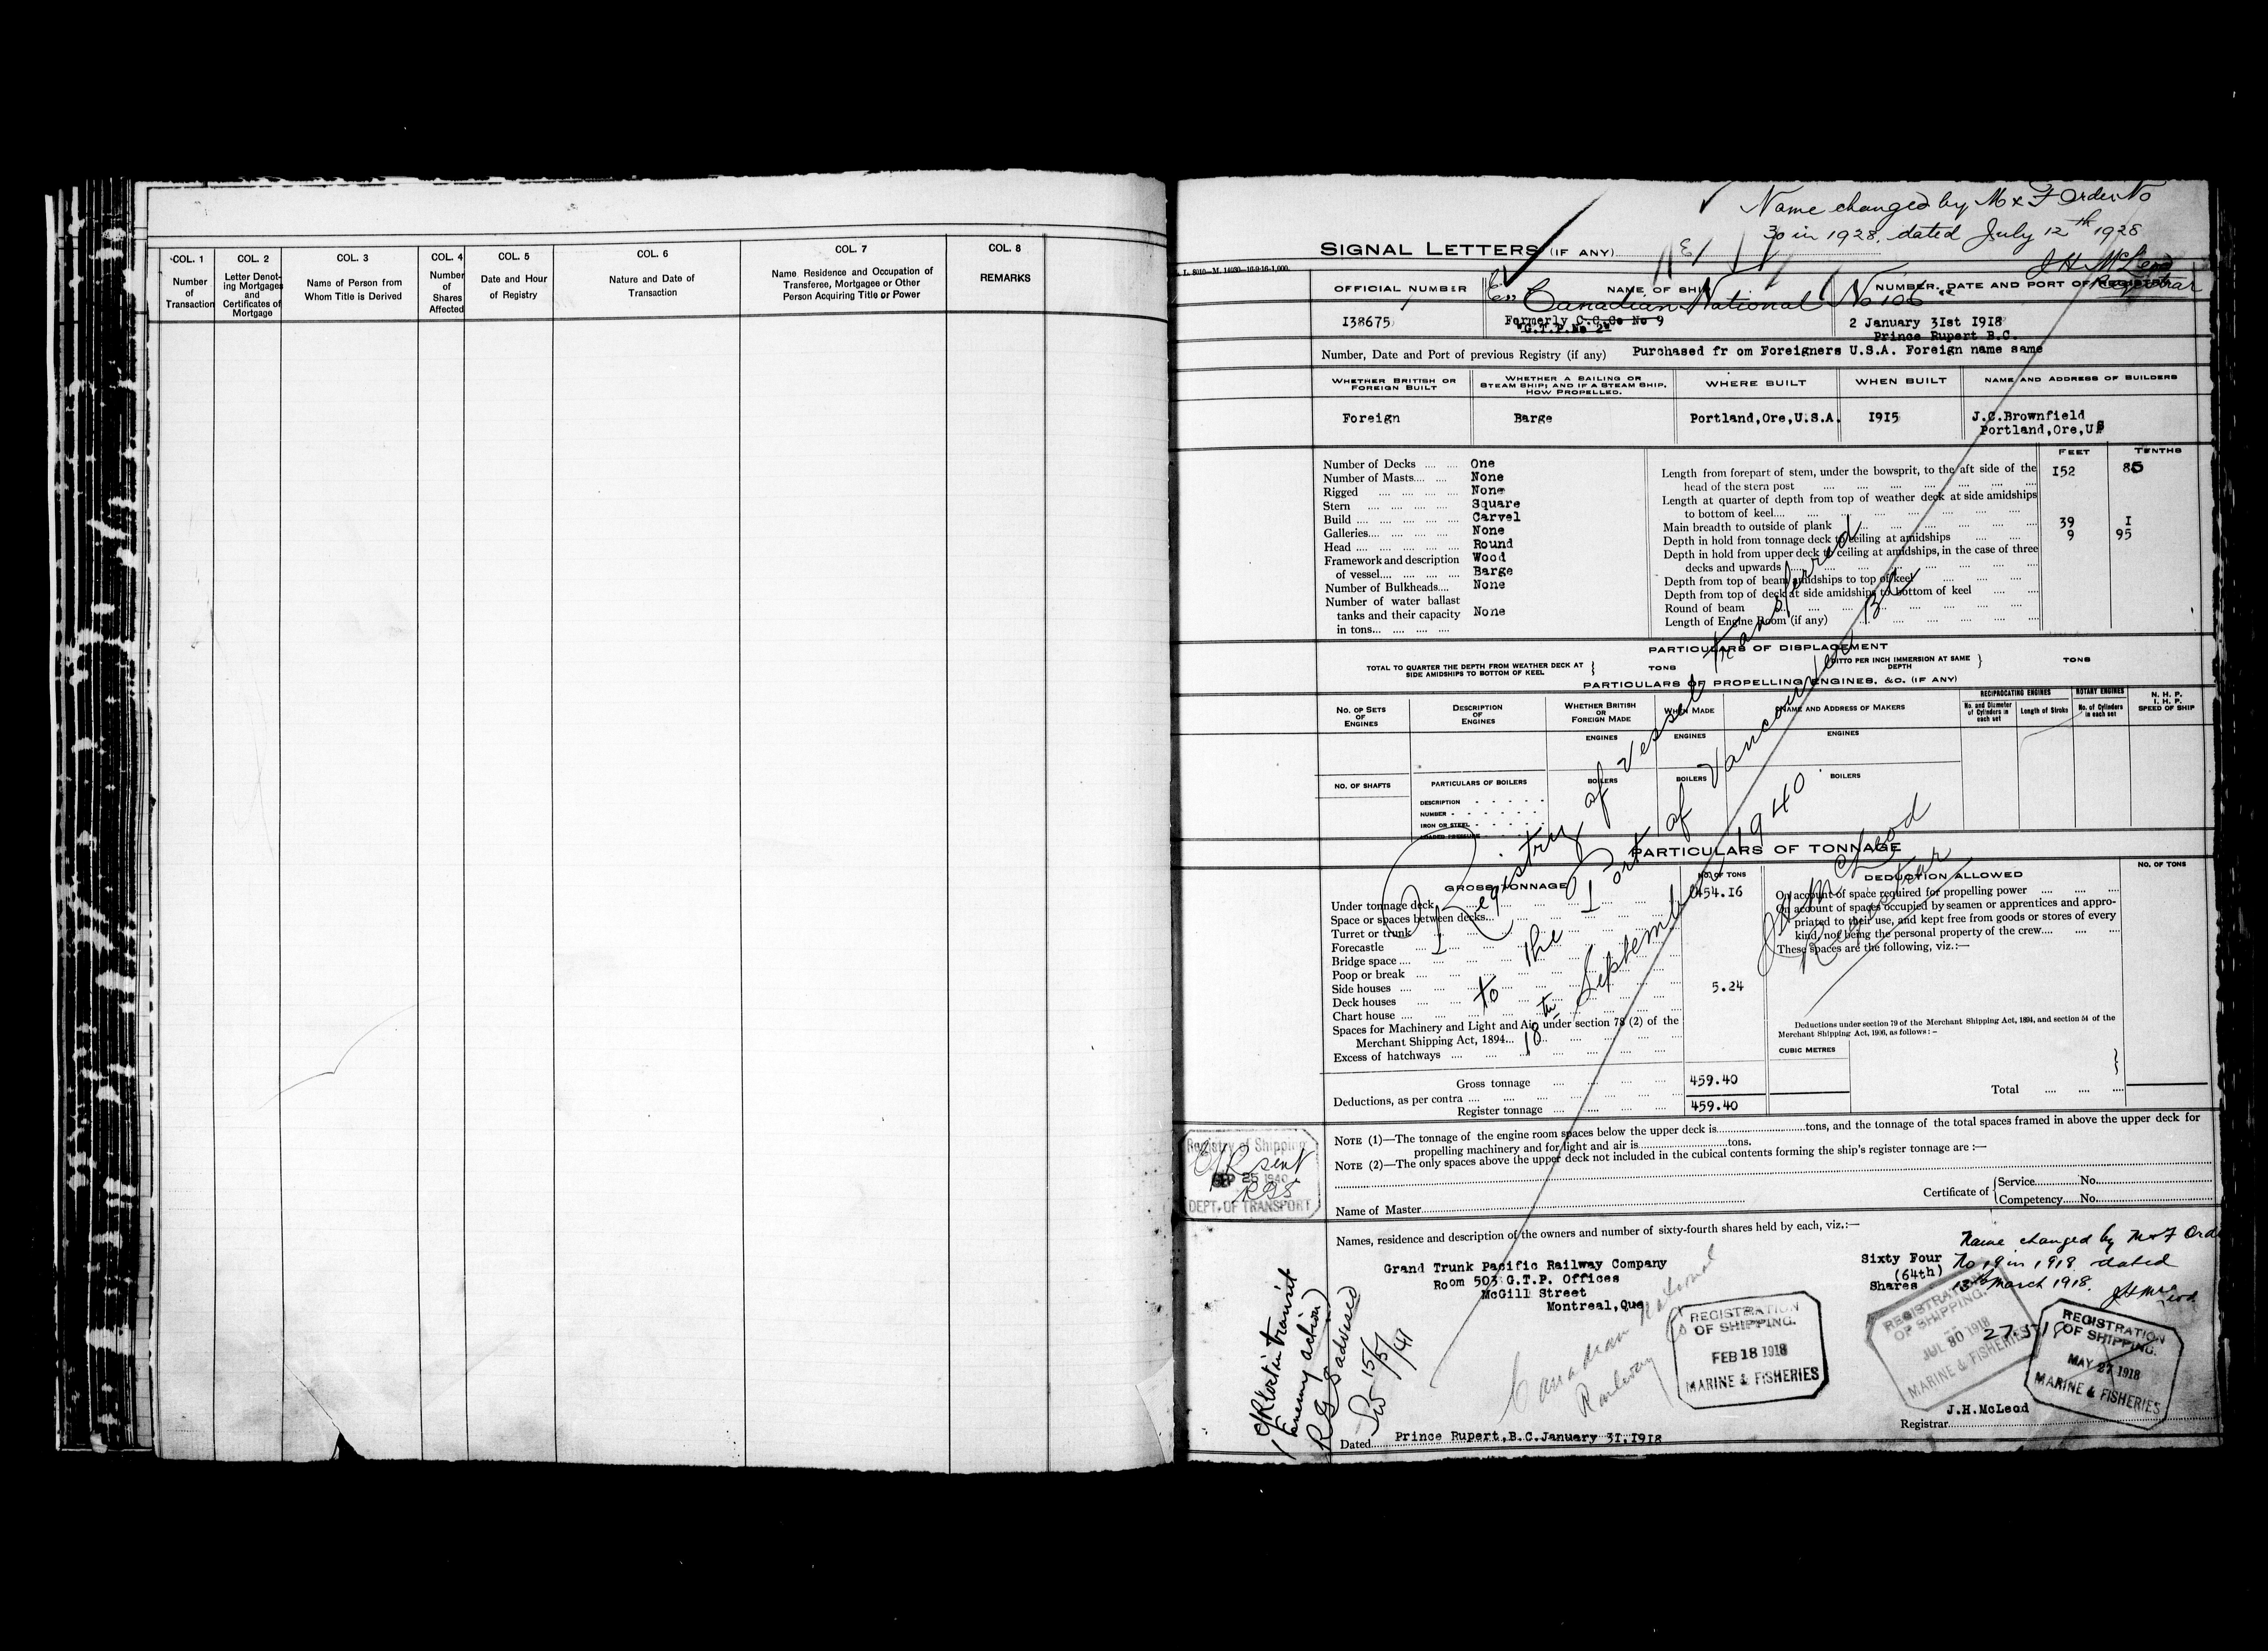 COL. 1
Number
of
Transaction
COL. 2
Letter Denot-
ing Mortgages
and
Certificates of
Mortgage
COL. 3
Name of Person from
Whom Title is Derived
COL. 4
Number
of
Shares
Affected
COL. 5
Date and Hour
of Registry
COL. 6
Nature and Date of
Transaction
COL. 7
Name Residence and Occupation of
Transferee, Mortgagee or Other
Person Acquiring Title or Power
COL. 8
REMARKS
Name changed by M & F Order No
30 in 1928. dated July 12th 1928
J H McLeod
Registrar
SIGNAL LETTERS (IF ANY)
OFFICIAL NUMBER
NAME OF SHIP
NUMBER, DATE AND PORT OF REGISTRY
Canadian National No 106
138675
Formerly C.C.Co No 9
"G.T.P. No 2"
2 January 31st 1918
Prince Rupert B.C.
Number, Date and Port of previous Registry (if any) Purchased fr om Foreigners U.S.A. Foreign name same
WHETHER BRITISH OR
FOREIGN BUILT
WHETHER A SAILING OR
STEAM SHIP; AND IF A STEAM SHIP,
HOW PROPELLED.
WHERE BUILT
WHEN BUILT
NAME AND ADDRESS OF BUILDERS
Foreign
Barge
Portland,Ore,U.S.A.
1915
J.C.Brownfield
Portland,Ore,US
FEET
TENTHS
Number of Decks One
Number of Masts None
Rigged None
Stern Square
Build Carvel
Galleries None
Head Round
Framework and description Wood
of vessel Barge
Number of Bulkheads None
Number of water ballast
tanks and their capacity None
in tons
Length from forepart of stem, under the bowsprit, to the aft side of the
head of the stern post 152 85
Length at quarter of depth from top of weather deck at side amidships
to bottom of keel
Main breadth to outside of plank 39 1
Depth in hold from tonnage deck to ceiling at amidships 9 95
Depth in hold from upper deck to ceiling at amidships, in the case of three
decks and upwards
Depth from top of beam amidships to top of keel
Depth from top of deck at side amidships to bottom of keel
Round of beam
Length of Engine Room (if any)
PARTICULARS OF DISPLACEMENT
TOTAL TO QUARTER THE DEPTH FROM WEATHER DECK AT
SIDE AMIDSHIPS TO BOTTOM OF KEEL
TONS
DITTO PER INCH IMMERSION AT SAME
DEPTH
TONS
PARTICULARS OF PROPELLING ENGINES, &C. (IF ANY)
NO. OF SETS
OF
ENGINES
DESCRIPTION
OF
ENGINES
WHETHER BRITISH
OR
FOREIGN MADE
WHEN MADE
NAME AND ADDRESS OF MAKERS
RECIPROCATING ENGINES
No. and Diameter
of Cylinders in
each set
Length of Stroke
ROTARY ENGINES
No. of Cylinders
in each set
N. H. P.
I. H. P.
SPEED OF SHIP
ENGINES
ENGINES
ENGINES
NO. OF SHAFTS
PARTICULARS OF BOILERS
BOILERS
BOILERS
BOILERS
DESCRIPTION
NUMBER
IRON OR STEEL
LOADED PRESSURE
Registry of vessel transferred
to the Port of Vancouver B.C.
18th September 1940
J H McLeod
Registrar
PARTICULARS OF TONNAGE
GROSS TONNAGE
NO. OF TONS
DEDUCTION ALLOWED
NO. OF TONS
Under tonnage deck 454.16
Space or spaces between decks
Turret or trunk
Forecastle
Bridge space
Poop or break
Side houses 5.24
Deck houses
Chart house
Spaces for Machinery and Light and Air under section 78 (2) of the
Merchant Shipping Act, 1894
Excess of hatchways
Gross tonnage 459.40
Deductions, as per contra
Register tonnage 459.40
On account of space required for propelling power
On account of spaces occupied by seamen or apprentices and appro-
priated to their use, and kept free from goods or stores of every
kind, not being the personal property of the crew
These spaces are the following, viz.:—
Deductions under section 79 of the Merchant Shipping Act, 1894, and section 54 of the
Merchant Shipping Act, 1906, as follows:—
CUBIC METRES
Total
NOTE (1)—The tonnage of the engine room spaces below the upper deck is tons, and the tonnage of the total spaces framed in above the upper deck for
propelling machinery and for light and air is tons.
NOTE (2)—The only spaces above the upper deck not included in the cubical contents forming the ship's register tonnage are :—
Registry of Shipping
C/R sent
SEP 25 1940
RGS
DEPT. OF TRANSPORT
Name of Master
Certificate of
Service No.
Competency No.
Names, residence and description of the owners and number of sixty-fourth shares held by each, viz.:—
Grand Trunk Pacific Railway Company
Room 503 G.T.P. Offices
McGill Street
Montreal,Que
Sixty Four
(64th)
Shares
Name changed by M & F Orde
No 19 in 1918 dated
13th March 1918.
J H McLeod
Canadian National
Railway Co
REGISTRATION
OF SHIPPING.
FEB 18 1918
MARINE & FISHERIES
REGISTRATION
OF SHIPPING.
JUL 30 1918
MARINE & FISHERIES
27.5.18
REGISTRATION
OF SHIPPING.
MAY 27 1918
MARINE & FISHERIES
C/R lost in transit
(Enemy action)
RGS advised
15/5/41
J.H.McLeod
Registrar
Dated Prince Rupert,B.C.January 31,1918